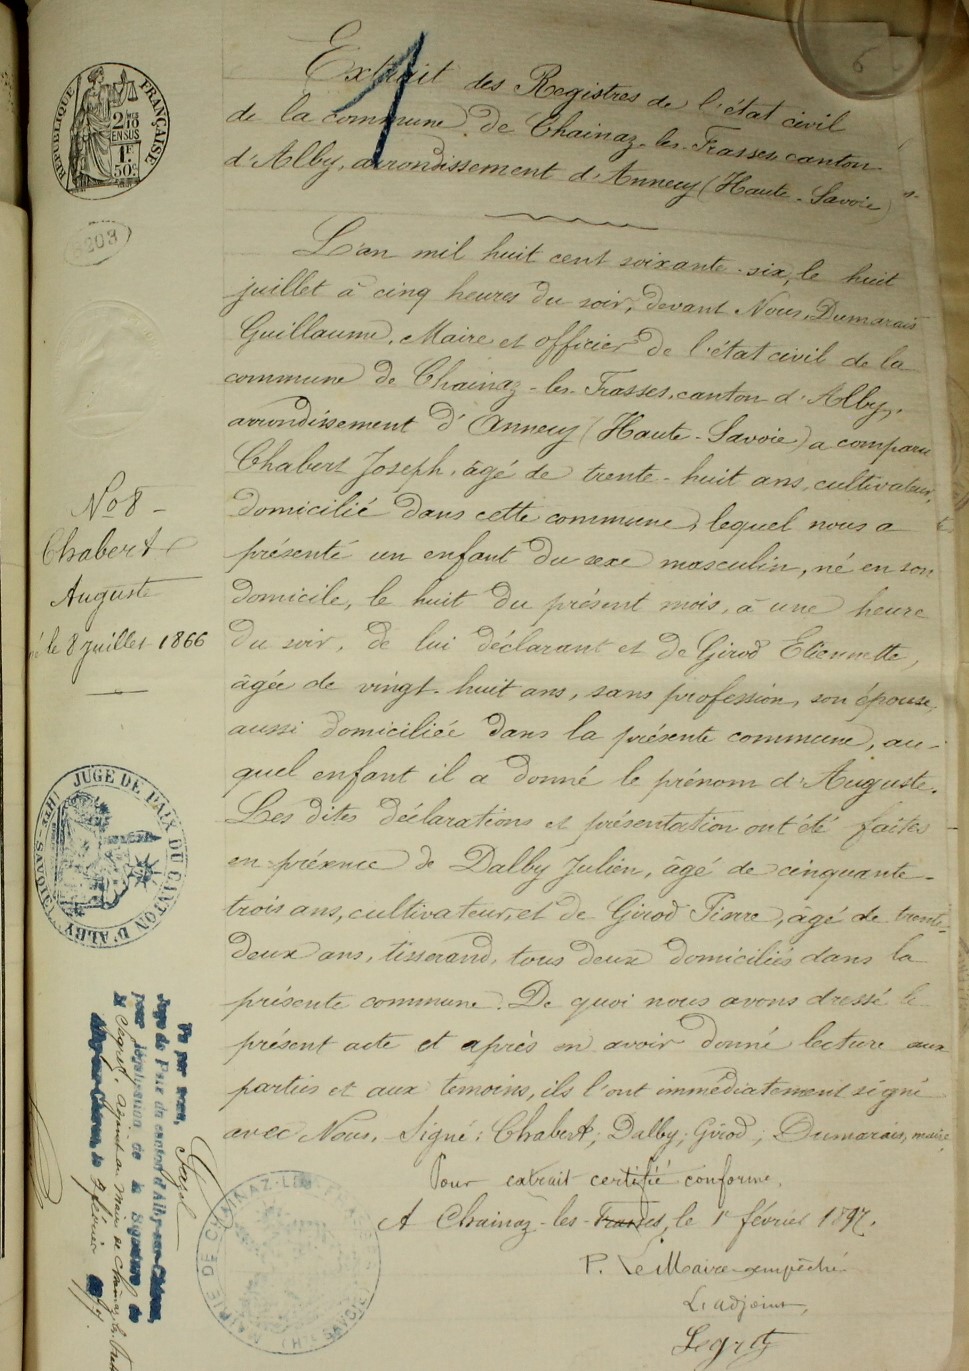 6
RÉPUBLIQUE FRANÇAISE
2/10
EN SUS
1F.
50c.
8203
1
Extrait des Registres de l'état civil
de la commune de Chainaz-les-Frasses, canton
d'Alby, arrondissement d'Annecy (Haute-Savoie)
L'an mil huit cent soixante-six, le huit
juillet à cinq heures du soir, devant Nous, Dumarais
Guillaume, Maire et officier de l'état civil de la
commune de Chainaz-les-Frasses, canton d'Alby,
arrondissement d'Annecy (Haute-Savoie) a comparu
Chabert Joseph, âgé de trente-huit ans, cultivateur,
domicilié dans cette commune, lequel nous a
présenté un enfant du sexe masculin, né en son
domicile, le huit du présent mois, à une heure
du soir, de lui déclarant et de Girod Etiennette,
âgée de vingt-huit ans, sans profession, son épouse,
aussi domiciliée dans la présente commune, au-
quel enfant il a donné le prénom d'Auguste.
Les dites déclarations et présentation ont été faites
en présence de Dalby Julien, âgé de cinquante-
trois ans, cultivateur, et de Girod Pierre, âgé de trente-
deux ans, tisserand, tous deux domiciliés dans la
présente commune. De quoi nous avons dressé le
présent acte et après en avoir donné lecture aux
parties et aux temoins, ils l'ont immédiatement signé
avec Nous. Signé: Chabert; Dalby; Girod; Dumarais, maire.
Pour extrait certifié conforme.
A Chainaz-les-Frasses, le 1er février 1897.
P. Le Maire empêché
L'adjoint,
No 8
Chabert
Auguste
né le 8 juillet 1866
JUGE DE PAIX DU CANTON D'ALBY (HTE-SAVOIE)
Vu par nous,
Juge de Paix du canton d'Alby-sur-Chéran,
pour légalisation de la signature de
M
Alby-sur-Chéran, le 9 février
MAIRIE DE CHAINAZ-LES-FRASSES (HTE SAVOIE)